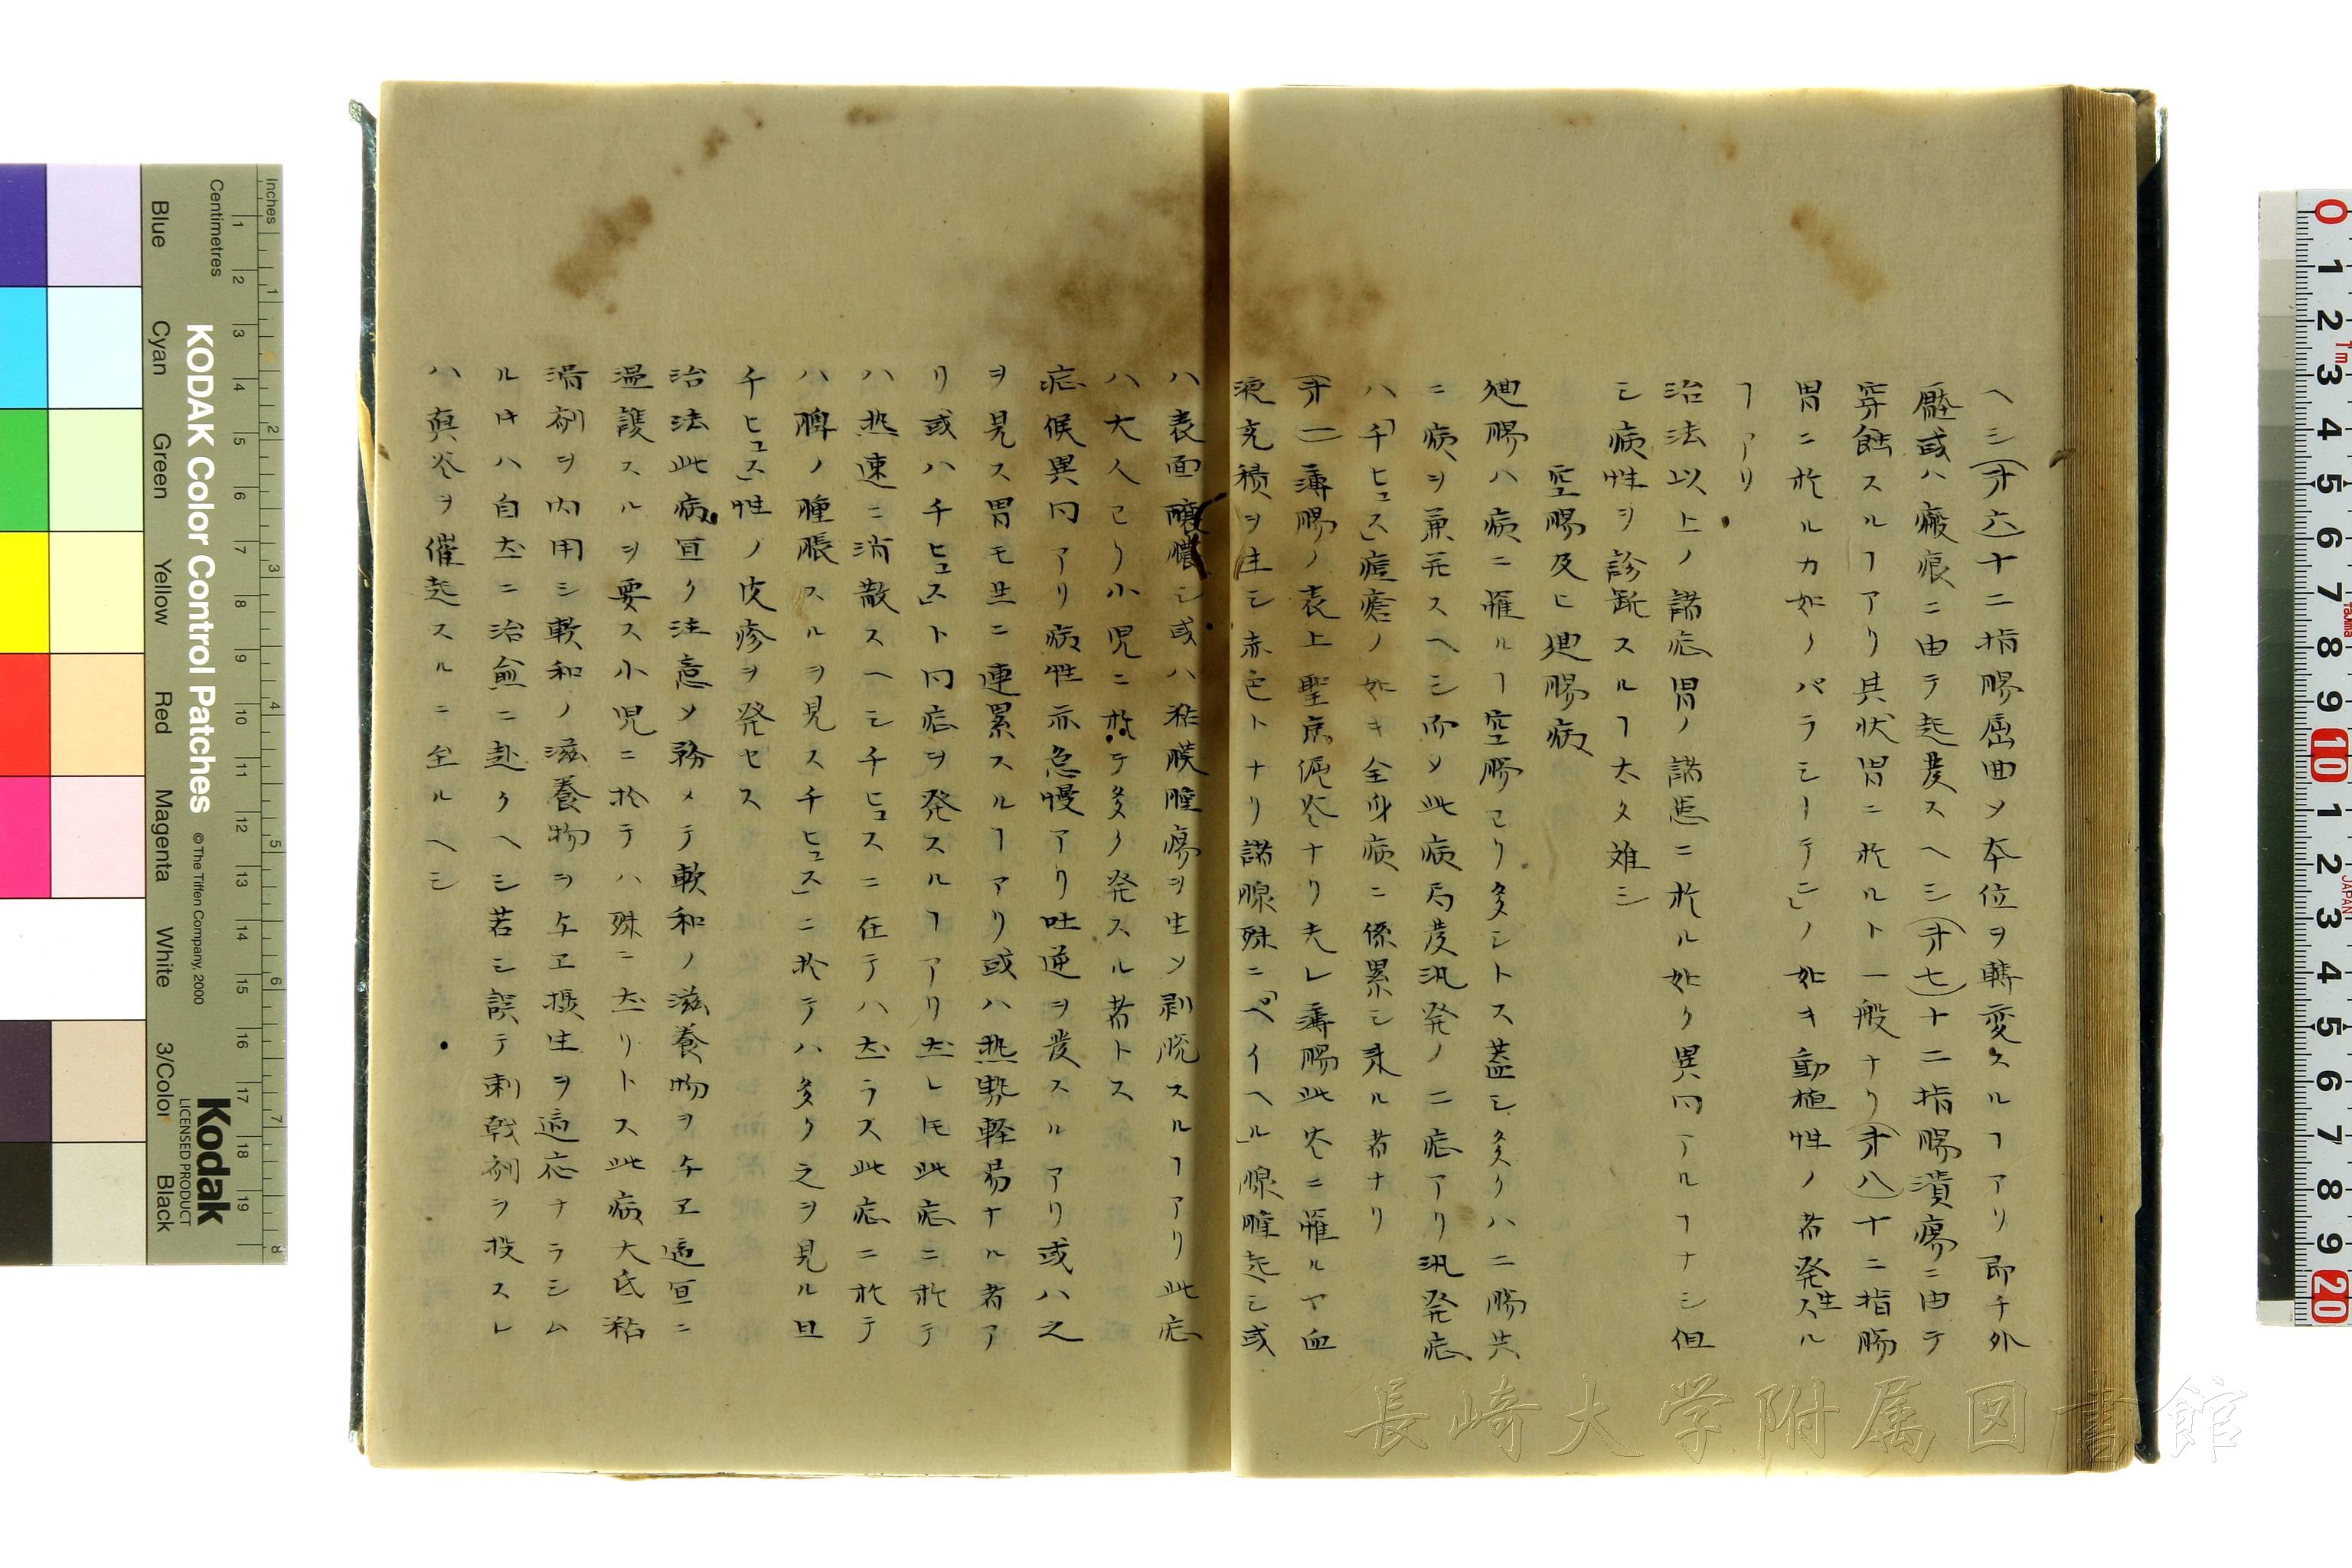 ヘシ(㐧六)十二指膓屈曲メ本位ヲ轉変スルヿアリ即チ外
壓或ハ瘢痕ニ由テ起発スヘシ(㐧七)十二指膓潰瘍ニ由テ
穿蝕スルヿアリ其状胃ニ於ルト一般ナリ(㐧八)十二指膓
胃ニ於ルカ如ノパラシーテン」ノ如キ動植性ノ者発生スル
ヿアリ
治法以上ノ諸症胃ノ諸患ニ於ル如ク異同アルヿナシ但
シ病性ヲ診㫁スルヿ太タ難シ
空膓及ヒ廽膓病
廽膓ハ病ニ罹ルヿ空膓ヨリ多シトス蓋シ多クハ二膓共
ニ病ヲ兼発スヘシ而メ此病局発汎発ノ二症アリ汎発症
ハ「チヒュス」痘瘡ノ如キ全身病ニ係累シ来ル者ナリ
(㐧一)薄膓ノ表上聖京偲炎ナリ夫レ薄膓此炎ニ罹ルヤ血
液充積ヲ生シ赤色トナリ諸腺殊ニ「ペイヘル」腺腫起シ或
ハ表面醸膿シ或ハ粘膜腫瘍ヲ生メ剥脱スルヿアリ此症
ハ大人ヨリ小児ニ於テ多ク発スル者トス
症候異同アリ病性亦急慢アリ吐逆ヲ発スルアリ或ハ之
ヲ見ス胃モ共ニ連累スルヿアリ或ハ熱勢軽易ナル者ア
リ或ハチヒュス」ト同症ヲ発スルヿアリ然レ𪜈此症ニ於テ
ハ熱速ニ消散スヘシチヒュスニ在テハ然ラス此症ニ於テ
ハ脾ノ腫脹スルヲ見スチヒュス」ニ於テハ多ク之ヲ見ル且
チヒュス」性ノ皮疹ヲ発セス
治法此病宜ク注意メ務メテ軟和ノ滋養物ヲ与ヱ適宜ニ
温護スルヲ要ス小児ニ於テハ殊ニ然リトス此病大氐粘
滑剤ヲ内用シ軟和ノ滋養物ヲ与ヱ摂生ヲ適応ナラシム
ル𪜈ハ自然ニ治愈ニ赴クヘシ若シ誤テ刺戟剤ヲ投スレ
ハ真炎ヲ催起スルニ至ルヘシ
長崎大学附属図書館
KODAK Color Control Patches
© The Tiffen Company, 2000
Kodak
LICENSED PRODUCT
Inches
Centimetres
Blue
Cyan
Green
Yellow
Red
Magenta
White
3/Color
Black
JAPAN